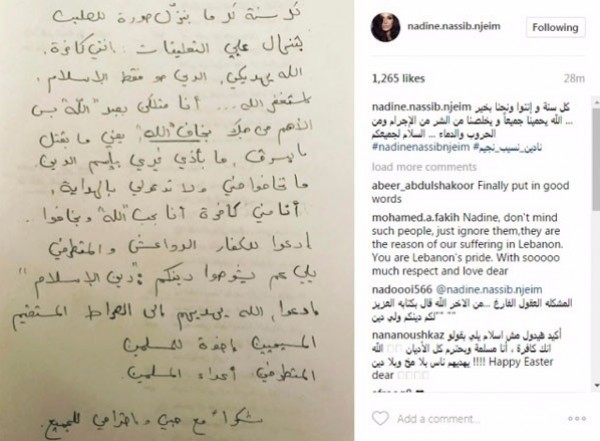 كل سنة لما بنزّل صورة للصليب
بتنهال عليي التعليقات: انتي كافرة.
الله يهديكي. الدين هو فقط الإسلام.
استغفر الله... أنا متلكن بعبد "الله" بس
الأهم من هيك بخاف "الله" يعني ما بقتل
ما بسرق، ما بأذي غيري بإسم الدين
ما تخافوا مني ولا تدعولي بالهداية،
أنا مني كافرة أنا بحب "الله" وبخافو..
إدعوا للكفار الدواعش والمتطرفين
يلي عم يشوهوا دينكم "دين الإسلام"
إدعوا، الله يهديهم الى الصراط المستقيم
المسيحيين إخوة للمسلمين
المتطرفين أعداء المسلمين
شكراً مع حبي واحترامي للجميع.
nadine.nassib.njeim
Following
1,265 likes
28m
nadine.nassib.njeim كل سنة و إنتوا ونحنا بخير
... الله يحمينا جميعاً و يخلصنا من الشر من الإجرام ومن
الحروب والدماء ... السلام لجميعكم
#nadinenassibnjeim #نادين_نسيب_نجيم
load more comments
abeer_abdulshakoor Finally put in good
words
mohamed.a.fakih Nadine, don't mind
such people, just ignore them,they are
the reason of our suffering in Lebanon.
You are Lebanon's pride. With sooooo
much respect and love dear
nadoooi566 @nadine.nassib.njeim
المشكله العقول الفارغ ..عن الاخر الله قال بكتابه العزيز
"" لكم دينكم ولي دين ""
nananoushkaz أكيد هيدول مش اسلام يلي بقولو
انك كافرة ، أنا مسلمة وبحترم كل الأديان الله
يهديهم ناس بلا مخ وبلا دين !!!! Happy Easter
dear
Add a comment...